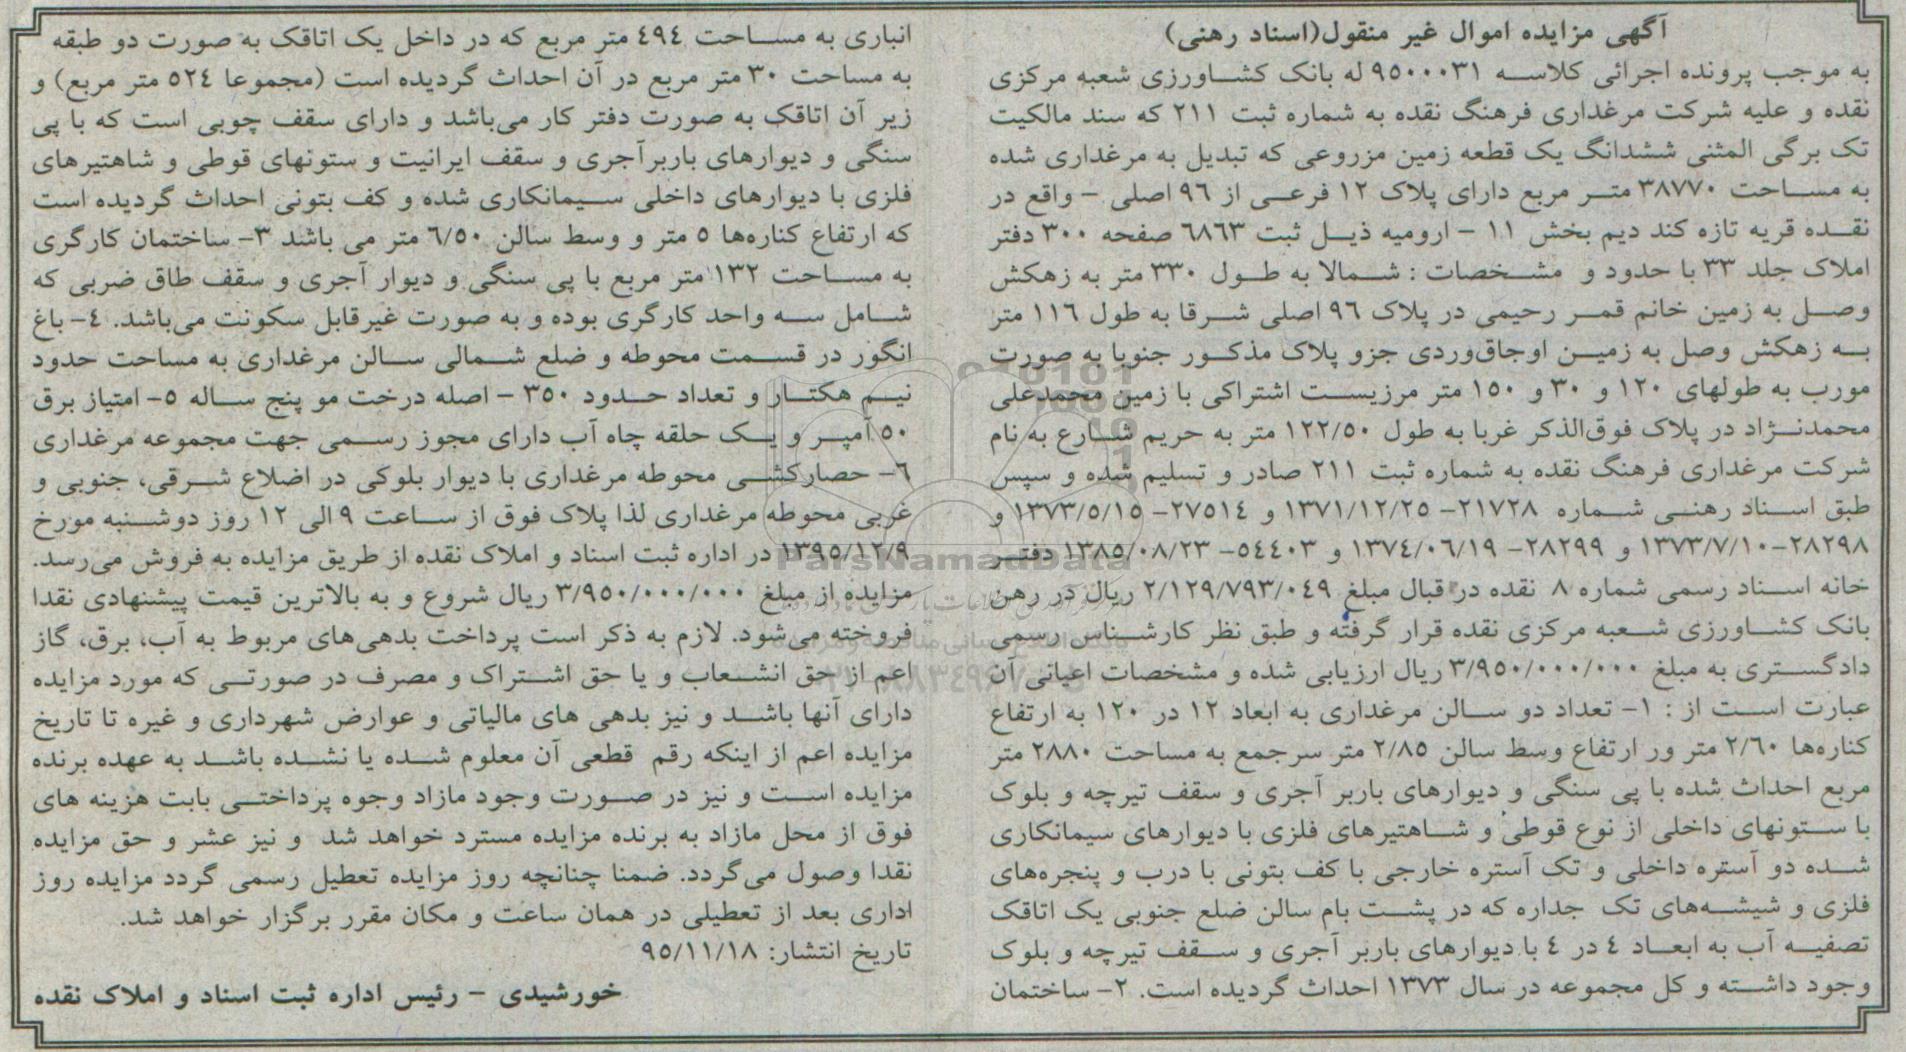 آگهی مزایده اموال غیر منقول(اسناد رهنی)
به موجب پرونده اجرائی کلاسه ۹۵۰۰۰۳۱ له بانک کشاورزی شعبه مرکزی
نقده و علیه شرکت مرغداری فرهنگ نقده به شماره ثبت ۲۱۱ که سند مالکیت
تک برگی المثنی ششدانگ یک قطعه زمین مزروعی که تبدیل به مرغداری شده
به مساحت ۳۸۷۷۰ متر مربع دارای پلاک ۱۲ فرعی از ۹۶ اصلی - واقع در
نقده قریه تازه کند دیم بخش ۱۱ - ارومیه ذیل ثبت ۶۸۶۳ صفحه ۳۰۰ دفتر
املاک جلد ۳۳ با حدود و مشخصات : شمالا به طول ۳۳۰ متر به زهکش
وصل به زمین خانم قمر رحیمی در پلاک ۹۶ اصلی شرقا به طول ۱۱۶ متر
به زهکش وصل به زمین اوجاق‌وردی جزو پلاک مذکور جنوبا به صورت
مورب به طولهای ۱۲۰ و ۳۰ و ۱۵۰ متر مرزیست اشتراکی با زمین محمدعلی
محمدنژاد در پلاک فوق‌الذکر غربا به طول ۱۲۲/۵۰ متر به حریم شارع به نام
شرکت مرغداری فرهنگ نقده به شماره ثبت ۲۱۱ صادر و تسلیم شده و سپس
طبق اسناد رهنی شماره ۲۱۷۲۸- ۱۳۷۱/۱۲/۲۵ و ۲۷۵۱۴- ۱۳۷۳/۵/۱۵ و
۲۸۲۹۸-۱۳۷۳/۷/۱۰ و ۲۸۲۹۹- ۱۳۷۴/۰۶/۱۹ و ۵۴۴۰۳- ۱۳۸۵/۰۸/۲۳ دفتر
خانه اسناد رسمی شماره ۸ نقده در قبال مبلغ ۲/۱۲۹/۷۹۳/۰۴۹ ریال در رهن
بانک کشاورزی شعبه مرکزی نقده قرار گرفته و طبق نظر کارشناس رسمی
دادگستری به مبلغ ۳/۹۵۰/۰۰۰/۰۰۰ ریال ارزیابی شده و مشخصات اعیانی آن
عبارت است از : ۱- تعداد دو سالن مرغداری به ابعاد ۱۲ در ۱۲۰ به ارتفاع
کناره‌ها ۲/۶۰ متر ور ارتفاع وسط سالن ۲/۸۵ متر سرجمع به مساحت ۲۸۸۰ متر
مربع احداث شده با پی سنگی و دیوارهای باربر آجری و سقف تیرچه و بلوک
با ستونهای داخلی از نوع قوطی و شاهتیرهای فلزی با دیوارهای سیمانکاری
شده دو آستره داخلی و تک آستره خارجی با کف بتونی با درب و پنجره‌های
فلزی و شیشه‌های تک جداره که در پشت بام سالن ضلع جنوبی یک اتاقک
تصفیه آب به ابعاد ۴ در ۴ با دیوارهای باربر آجری و سقف تیرچه و بلوک
وجود داشته و کل مجموعه در سال ۱۳۷۳ احداث گردیده است. ۲- ساختمان
انباری به مساحت ۴۹۴ متر مربع که در داخل یک اتاقک به صورت دو طبقه
به مساحت ۳۰ متر مربع در آن احداث گردیده است (مجموعا ۵۲۴ متر مربع) و
زیر آن اتاقک به صورت دفتر کار می‌باشد و دارای سقف چوبی است که با پی
سنگی و دیوارهای باربرآجری و سقف ایرانیت و ستونهای قوطی و شاهتیرهای
فلزی با دیوارهای داخلی سیمانکاری شده و کف بتونی احداث گردیده است
که ارتفاع کناره‌ها ۵ متر و وسط سالن ۶/۵۰ متر می باشد ۳- ساختمان کارگری
به مساحت ۱۳۲ متر مربع با پی سنگی و دیوار آجری و سقف طاق ضربی که
شامل سه واحد کارگری بوده و به صورت غیرقابل سکونت می‌باشد. ۴- باغ
انگور در قسمت محوطه و ضلع شمالی سالن مرغداری به مساحت حدود
نیم هکتار و تعداد حدود ۳۵۰ - اصله درخت مو پنج ساله ۵- امتیاز برق
۵۰ آمپر و یک حلقه چاه آب دارای مجوز رسمی جهت مجموعه مرغداری
۶- حصارکشی محوطه مرغداری با دیوار بلوکی در اضلاع شرقی، جنوبی و
غربی محوطه مرغداری لذا پلاک فوق از ساعت ۹ الی ۱۲ روز دوشنبه مورخ
۱۳۹۵/۱۲/۹ در اداره ثبت اسناد و املاک نقده از طریق مزایده به فروش می‌رسد.
مزایده از مبلغ ۳/۹۵۰/۰۰۰/۰۰۰ ریال شروع و به بالاترین قیمت پیشنهادی نقدا
فروخته می‌شود. لازم به ذکر است پرداخت بدهی‌های مربوط به آب، برق، گاز
اعم از حق انشعاب و یا حق اشتراک و مصرف در صورتی که مورد مزایده
دارای آنها باشد و نیز بدهی های مالیاتی و عوارض شهرداری و غیره تا تاریخ
مزایده اعم از اینکه رقم قطعی آن معلوم شده یا نشده باشد به عهده برنده
مزایده است و نیز در صورت وجود مازاد وجوه پرداختی بابت هزینه های
فوق از محل مازاد به برنده مزایده مسترد خواهد شد و نیز عشر و حق مزایده
نقدا وصول می‌گردد. ضمنا چنانچه روز مزایده تعطیل رسمی گردد مزایده روز
اداری بعد از تعطیلی در همان ساعت و مکان مقرر برگزار خواهد شد.
تاریخ انتشار: ۹۵/۱۱/۱۸
خورشیدی - رئیس اداره ثبت اسناد و املاک نقده
ParsNamadData